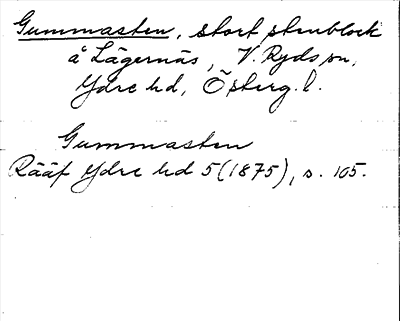 Gummasten, stort stenblock
å Lägernäs, V. Ryds sn,
Ydre hd, Österg. l.
Gummasten
Rääf Ydre hd 5 (1875), s. 105.